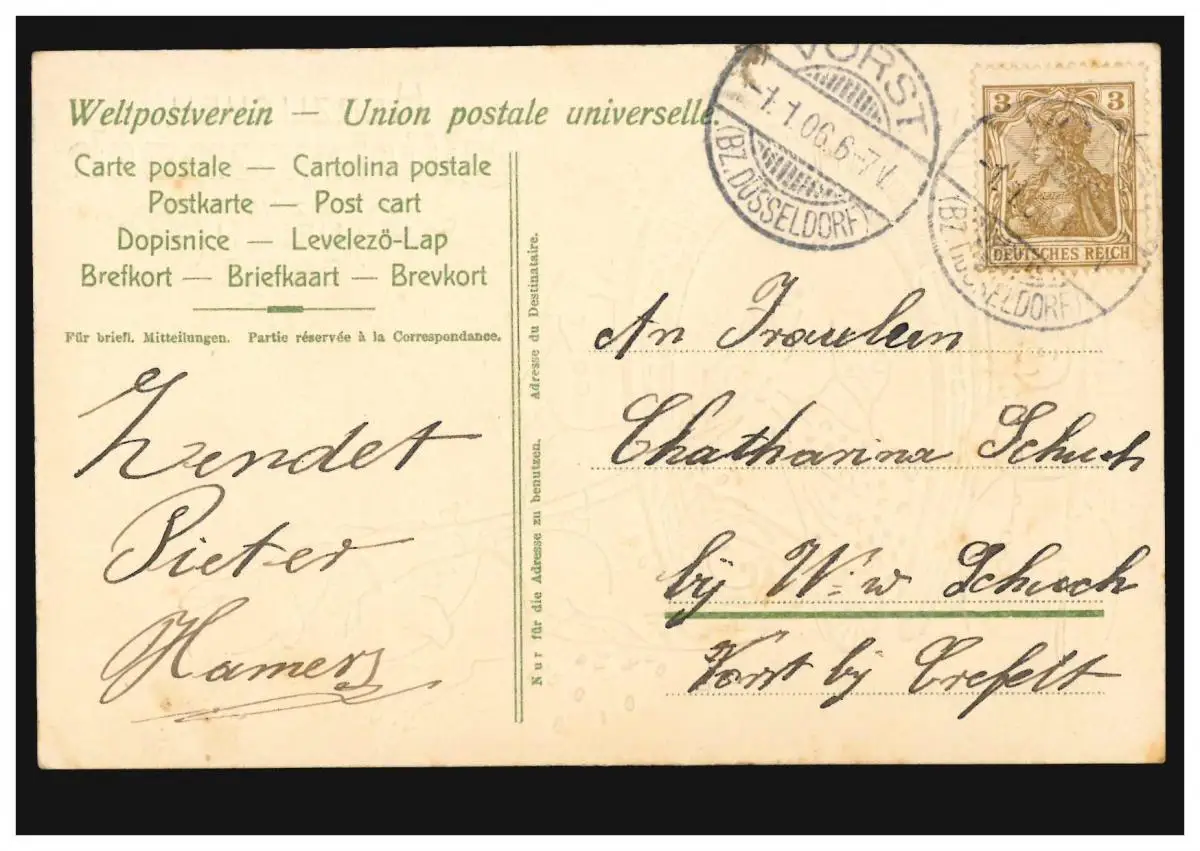 Weltpostverein — Union postale universelle.
Carte postale — Cartolina postale
Postkarte — Post cart
Dopisnice — Levelező-Lap
Brefkort — Briefkaart — Brevkort
Für briefl. Mitteilungen. Partie réservée à la Correspondance.
Zendet
Pieter
Hamers
Nur für die Adresse zu benutzen. Adresse du Destinataire.
VORST
-1.1.06.6-7V.
(BZ. DÜSSELDORF)
3 3
DEUTSCHES REICH
(BZ. DÜSSELDORF)
An Fraulein
Chatharina Schuch
bij W:w Schuch
Vorst bij Crefelt